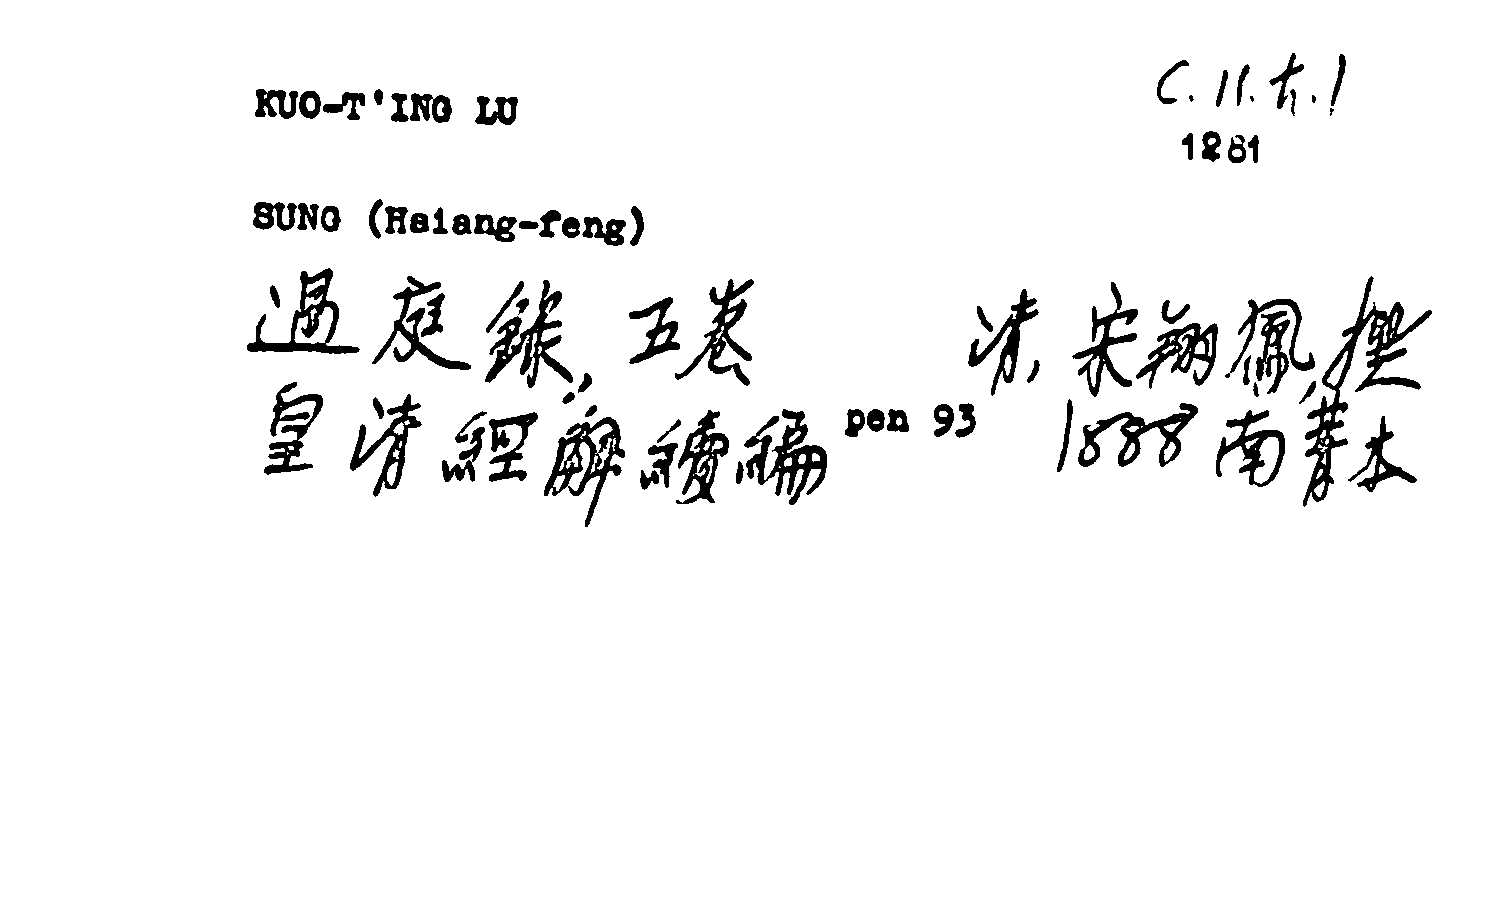 KUO-T'ING LU
C.11.h.1
1281
SUNG (Hsiang-feng)
過庭錄, 五卷 清, 宋翔鳳, 撰
皇清經解續編 pen 93 1888 南菁本